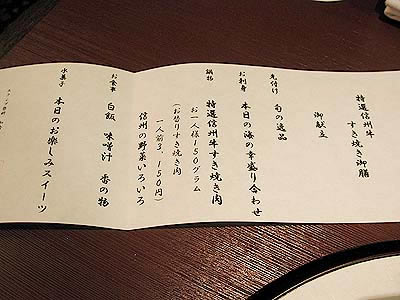 特選信州牛
すき焼き御膳
御献立
先付け 旬の逸品
お刺身 本日の海の幸盛り合わせ
鍋物 特選信州牛すき焼き肉
お一人様150グラム
(お替りすき焼き肉
一人前3,150円)
信州の野菜いろいろ
お食事 白飯 味噌汁 香の物
水菓子 本日のお楽しみスイーツ